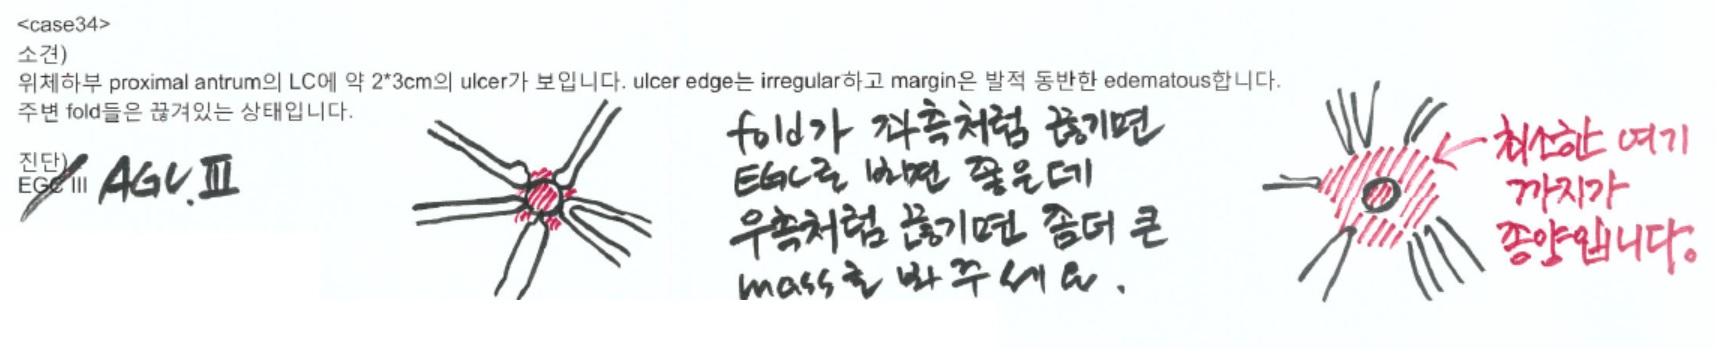 <case34>
소견)
위체하부 proximal antrum의 LC에 약 2*3cm의 ulcer가 보입니다. ulcer edge는 irregular하고 margin은 발적 동반한 edematous합니다.
주변 fold들은 끊겨있는 상태입니다.
진단)
EGC III AGC. III
fold가 좌측처럼 끊기면
EGC로 보면 좋은데
우측처럼 끊기면 좀더 큰
mass로 봐 주세요.
최소한 여기
까지가
종양입니다.